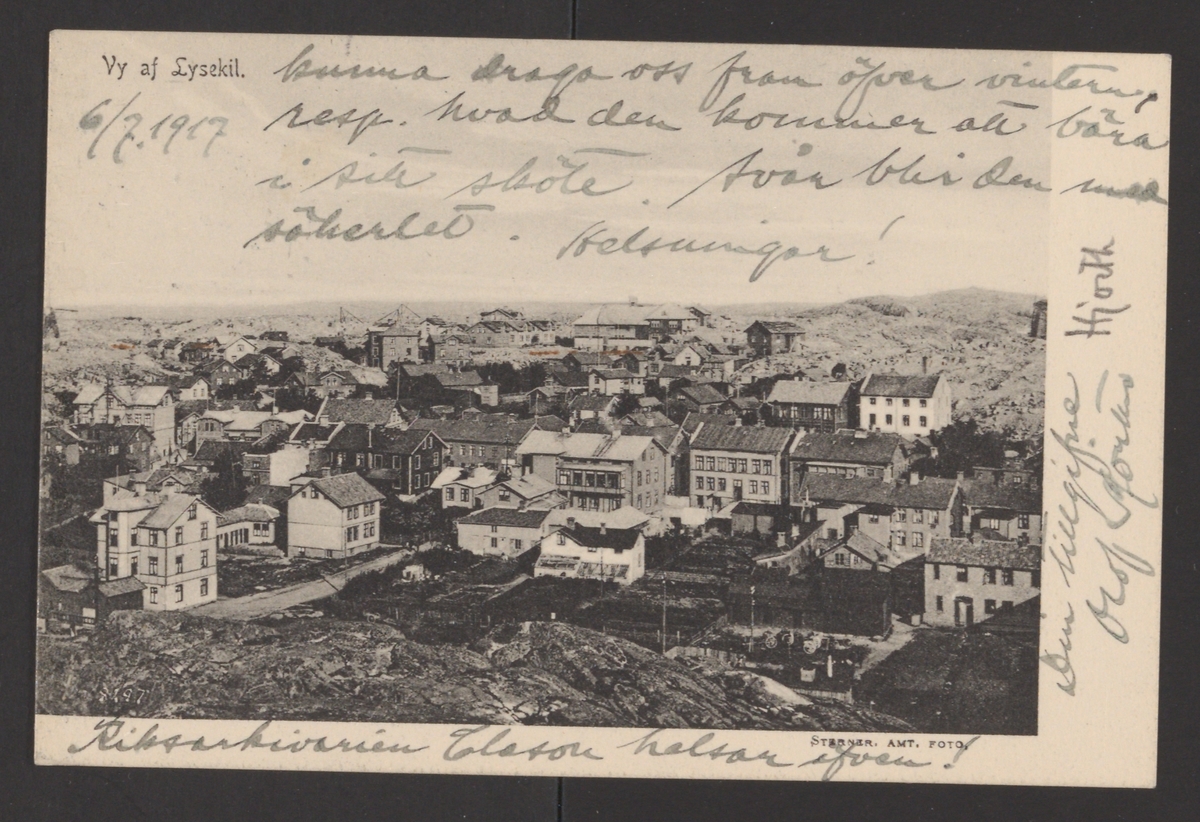 Vy af Lysekil.
6/7.1917
kunna draga oss fram öfver vintern,
resp. hvad den kommer att bära
i sitt sköte. Svår blir den med
säkerhet. Helsningar!
Din tillgifne
Olof Hjorth
8197
Riksarkivarien Clason helsar äfven!
STERNER. AMT. FOTO.